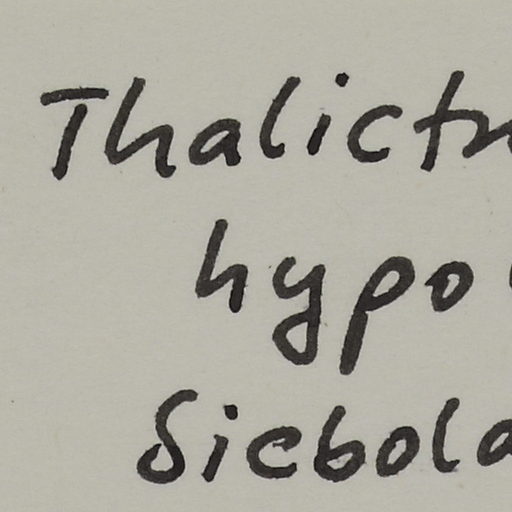 Thalictr
hypo
Siebold